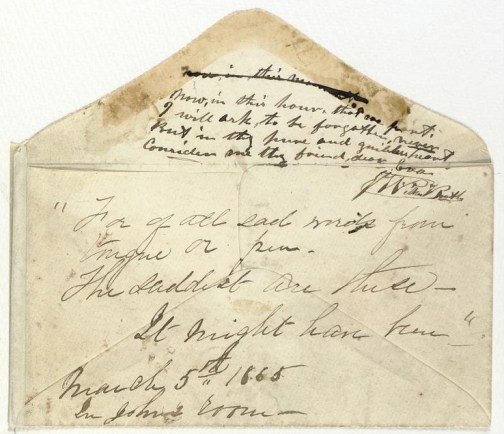 now, in this
Now, in this hour, that we part,
I will ask, to be forgotten, never
But, in thy pure and guileless heart,
Consider me thy friend, dear Eva.
J. Wilkes Booth
"For of all sad words from
tongue or pen.
The saddest are these—
It might have been"
March 5th 1865
In John's room—